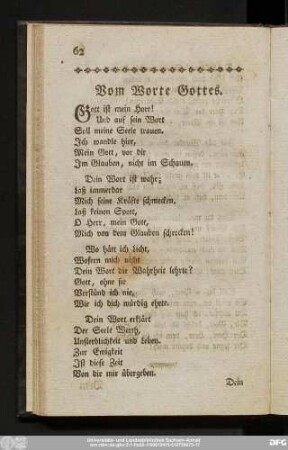 62
Vom Worte Gottes.
Gott ist mein Hort!
Und auf sein Wort
Soll meine Seele trauen.
Ich wandle hier,
Mein Gott, vor dir
Im Glauben, nicht im Schauen.
Dein Wort ist wahr;
Laß immerdar
Mich seine Kräfte schmecken.
Laß keinen Spott,
O Herr, mein Gott,
Mich von dem Glauben schrecken!
Wo hätt ich Licht,
Wofern mich nicht
Dein Wort die Wahrheit lehrte?
Gott, ohne sie
Verstünd ich nie,
Wie ich dich würdig ehrte.
Dein Wort erklärt
Der Seele Werth,
Unsterblichkeit und Leben.
Zur Ewigkeit
Ist diese Zeit
Von dir mir übergeben.
Dein
Universitäts- und Landesbibliothek Sachsen-Anhalt